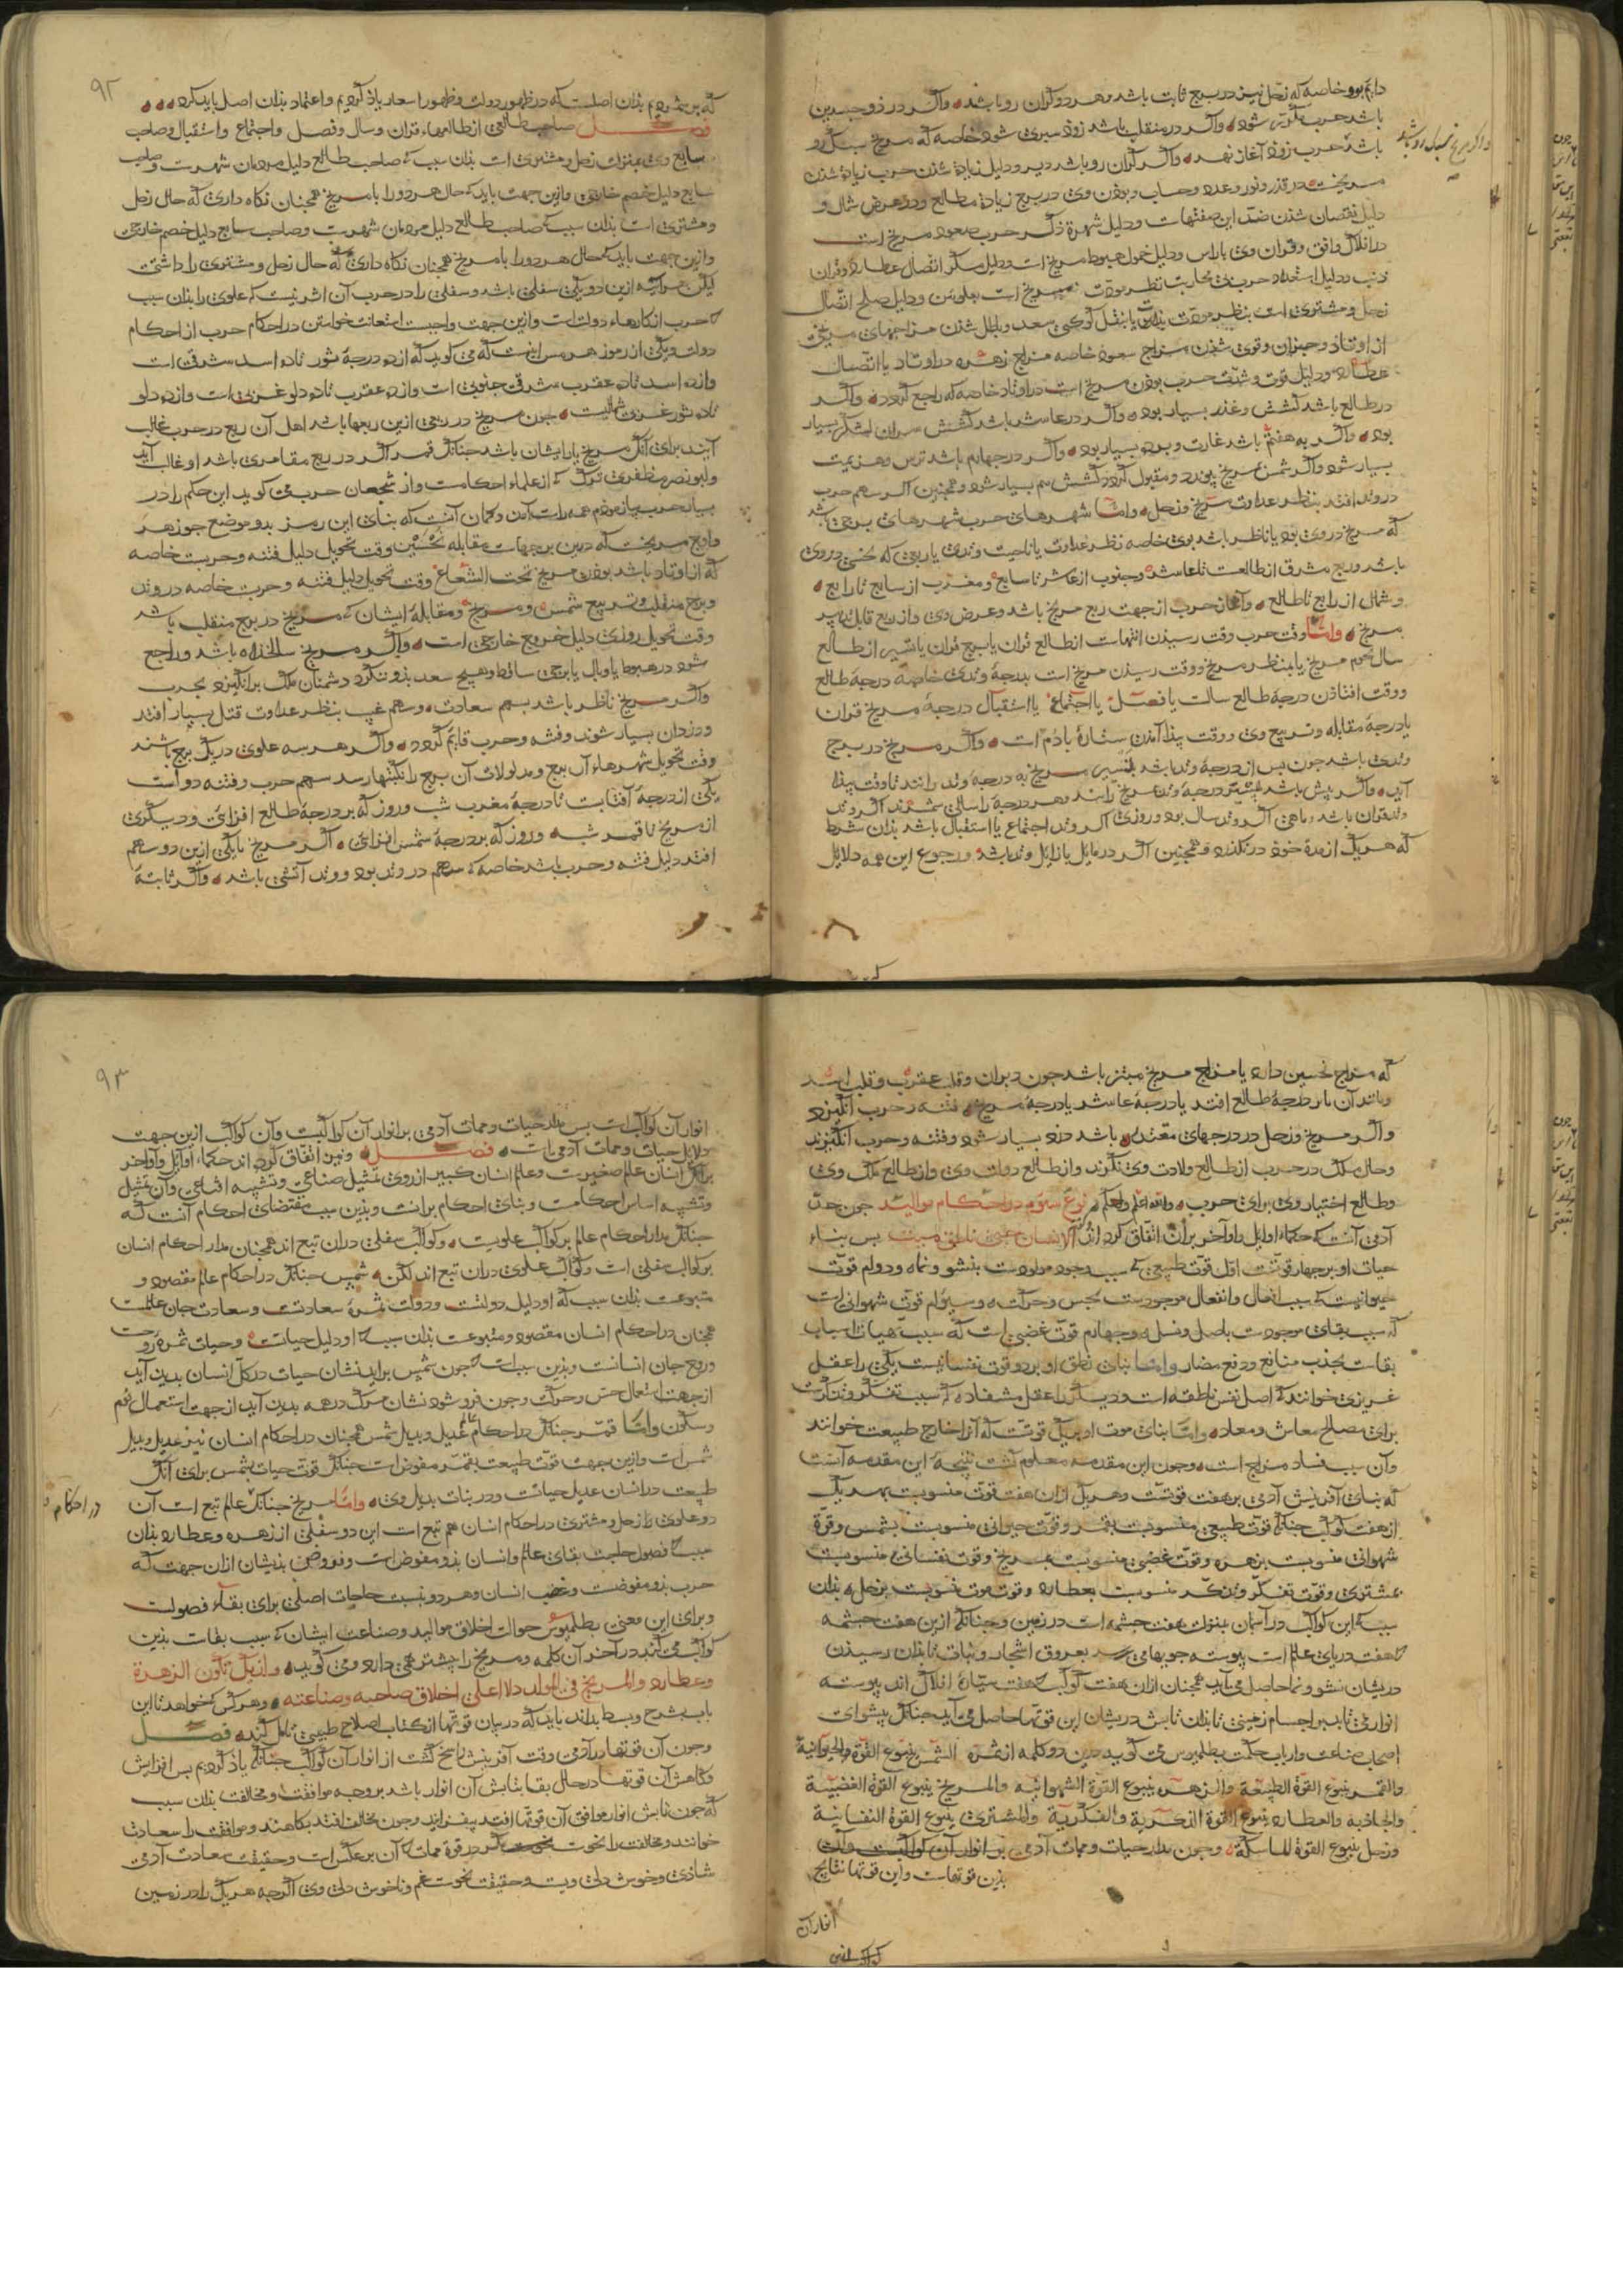 دایم بود خاصه که زحل نیز در برج ثابت باشد و هر دو گران رو باشند و اگر در ذو جسدین
باشد حرب مکرر شود و اگر در منقلب باشد زود سپری شود خاصه که مریخ سبک رو
باشد حرب زود آغاز نهد و اگر گران رو باشد دیر و دلیل زیادة شدن حرب زیادة شدن
مریخست در قدر و نور و عدد و حساب و بودن وی در برج زیادة مطالع و در عرض شمال و
دلیل نقصان شدن ضد این صفتهاست و دلیل شهرة ذکر حرب صعود مریخ است
در افلاک و افق و قران وی با راس و دلیل خمول هبوط مریخ است و دلیل مکر اتصال عطارد و قران
ذنب و دلیل استعداد حرب و محاربت نظر مودت مریخ است بعلویین و دلیل صلح اتصال
زحل و مشتری است بنظر مودت بذات یا بنقل کوکبی سعد و باطل شدن مزاجهای مریخی
از اوتاد و حیزان و قوی شدن مزاج سعود خاصه مزاج زهره در اوتاد یا اتصال
عطارد و دلیل قوت و شدت حرب بودن مریخ است در اوتاد خاصه که راجع گردد و اگر
در طالع باشد کشش و غدر بسیار بود و اگر در عاشر باشد کشش سران لشکر بسیار
بود و اگر به هفتم باشد غارت و برده بسیار بود و اگر در چهارم باشد ترس و هزیمت
بسیار شود و اگر شمس مریخ پیوندد و مقبول گردد کشش هم بسیار شود و همچنین اگر سهم حرب
در وتد افتد بنظر عداوت مریخ و زحل و اما شهرهای حرب شهرهای برجی باشد
که مریخ در وی بود یا ناظر باشد بوی خاصه نظر عداوت یا ناحیت وتدی یا ربعی که نحسی در وی
باشد و ربع مشرق از طالعست تا عاشر و جنوب از عاشر تا سابع و مغرب از سابع تا رابع
و شمال از رابع تا طالع و آغاز حرب از جهت ربع مریخ باشد و عرض وی و از ربع قابل تدبیر
مریخ و اما وقت حرب وقت رسیدن انتهاست از طالع قران یا برج قران یا تسیر از طالع
سال نجوم مریخ یا بنظر مریخ و وقت رسیدن مریخ است بدرجهٔ وتدی خاصه درجهٔ طالع
و وقت افتادن درجهٔ طالع سالست یا فصل یا اجتماع یا استقبال درجهٔ مریخ قران
یا درجهٔ مقابله و تربیع وی و وقت پیدا آمدن ستارهٔ با دم است و اگر مریخ در برج
وتدی باشد چون پس از درجهٔ وتد باشد بتسییر مریخ به درجهٔ وتد رانند تا وقت پیدا
آید و اگر پیش باشد بتسییر درجهٔ وتد مریخ رانند و هر درجه را سالی شمرند اگر وتد
وتد قران باشد و ماهی اگر وتد سال بود و روزی اگر وتد اجتماع یا استقبال باشد بذان شرط
که هر یک از مدة خود در نگذرد و همچنین اگر در مایل یا زایل وتد باشد و رجوع این همه دلایل
و اگر مریخ سبک رو باشد
۹۲
که بر شمردیم بذان اصلست که در ظهور دولت و ظهور اسعار یاذ کردیم و اعتماد بذان اصل باید کرد
فصل صاحب طالعی از طالعهاء قران و سال و فصل و اجتماع و استقبال و صاحب
سابع وی بمنزلت زحل و مشتری است بذان سبب که صاحب طالع دلیل مردمان شهرست و صاحب
سابع دلیل خصم خارجی و ازین جهت باید که حال هر دو را با مریخ همچنان نگاه داری که حال زحل
و مشتری است بذان سبب که صاحب طالع دلیل مردمان شهرست و صاحب سابع دلیل خصم خارجی
و ازین جهت باید که حال هر دو را با مریخ همچنان نگاه داری که حال زحل و مشتری را داشتی
لیکن هر آنچه ازین دو یکی سفلی باشد و سفلی را در حرب آن اثر نیست که علوی را بذان سبب
که حرب از کارهاء دولت است و ازین جهت واجبست استعانت خواستن در احکام حرب از احکام
دولت و یکی از رموز هرمس اینست که می گوید که از ده درجهٔ ثور تا ده اسد مشرقی است
و از ده اسد تا ده عقرب مشرقی جنوبی است و از ده عقرب تا ده دلو غربی است و از ده دلو
تا ده ثور غربی شمالیست چون مریخ در ربعی ازین ربعها باشد اهل آن ربع در حرب غالب
آیند برای آنک مریخ یار ایشان باشد چنانک قمر اگر در ربع مقامری باشد او غالب آید
و ابو نصر مظفری ترک که از علماء احکامست و از شجعان حرب می گوید این حکم را در
بسیار حرب بیازمودم همه راست آمدن و گمان آنست که بنای این رمز بدو موضع جوزهر
و اوج مریخست که درین بر جهات مقابله نحسین وقت تحویل دلیل فتنه و حربست خاصه
که از اوتاد باشد بودن مریخ تحت الشعاع وقت تحویل دلیل فتنه و حربست خاصه در وتد
و برج منقلب و تربیع شمس و مریخ و مقابله ایشان که مریخ در برج منقلب باشد
وقت تحویل روزی دلیل خروج خارجی است و اگر مریخ سالخداه باشد و راجع
شود در هبوط یا وبال یا برجی ساقط و هیچ سعد بذو ننگرد دشمنان ملک برانگیزد بحرب
و اگر مریخ ناظر باشد بسهم سعادت و سهم غیب بنظر عداوت قتل بسیار افتد
و دزدان بسیار شوند و فتنه و حرب قایم گردد و اگر هر سه علوی در یک برج باشند
وقت تحویل شهرهاء آن برج و مدلولات آن برج را نکبتها رسد سهم حرب و فتنه دو است
یکی از درجهٔ آفتابست تا درجهٔ مغرب شب و روز که بر درجهٔ طالع افزای و دیگری
از مریخ تا قمر شب و روز که بر درجهٔ شمس افزای و اگر مریخ با یکی ازین دو سهم
افتد دلیل فتنه و حرب باشد خاصه که سهم در وتد بود و وتد آتشی باشد و اگر ثابتهٔ
که مزاج نحسین دارد یا مزاج مریخ مبتز باشد چون دبران و قلب عقرب و قلب اسد
و مانند آن با درجهٔ طالع افتد یا درجهٔ عاشر یا درجهٔ مریخ فتنه و حرب انگیزد
و اگر مریخ و زحل در درجهای معتدله باشد دزد بسیار شود و فتنه و حرب انگیزند
و حال ملک در حرب از طالع ولادت وی نگرند و از طالع دولت وی و از طالع ملک وی
و طالع اختیار وی برای حرب والله اعلم و احکم نوع سوم در احکام موالید چون حد
آدمی آنست که حکماء اوایل و اواخر بر آن اتفاق کرده اند که الانسان حی ناطق میت پس بناء
حیات او بر چهار قوتست اول قوت طبیعی که سبب وجود مولودست بنشو و نما و دوام قوت
حیوانیست که سبب افعال و انفعال موجودست بحس و حرکت و سیوم قوت شهوانی است
که سبب بقای موجودست باصل و نسل و چهارم قوت غضبی است که سبب هیات اسباب
بقاست بجذب منافع و دفع مضار و اما بنای نطق او بر دو قوت نفسانیست یکی را عقل
غریزی خوانند که اصل نفس ناطقه است و دیگر را عقل مستفاد که سبب تفکر و تذکرست
برای مصالح معاش و معاد و اما بنای موت او بر یک قوتست که آنرا خارج طبیعت خوانند
و آن سبب فساد مزاج است و چون این مقدمه معلوم گشت نتیجه این مقدمه آنست
که بنای آفرینش آدمی بر هفت قوتست و هر یک ازان هفت قوت منسوبست بهر یک
از هفت کوکب چنانک قوت طبیعی منسوبست بقمر و قوت حیوانی منسوبست بشمس و قوة
شهوانی منسوبست بزهره و قوت غضبی منسوبست بمریخ و قوت نفسانی منسوبست
بمشتری و قوت تفکر و تذکر منسوبست بعطارد و قوت موت منسوبست بزحل بذان
سبب که این کواکب در آسمان بمنزلت هفت چشمه است در زمین و چنانک ازین هفت چشمه
که هفت دریای عالم است پیوسته جویهای می رسد بعروق اشجار و نبات تا بذان رسیدن
دریشان نشو و نما حاصل می آید همچنان ازان هفت کوکب که هفت سیارهٔ افلاک اند پیوسته
انوار می تابد بر اجسام زمینی تا بذان تابش دریشان این قوتها حاصل می آید چنانک پیشوای
اصحاب صناعت و ارباب حکمت بطلمیوس می گوید درین دو کلمه از ثمره الشمس ینبوع القوة الحیوانیة
والقمر ینبوع القوة الطبیعیة والزهره ینبوع القوة الشهوانیه والمریخ ینبوع القوة الغضبیة
والجاذبه والعطارد ینبوع القوة الذکریة والفکریة والمشتری ینبوع القوة النفسانیة
وزحل ینبوع القوة الماسکة و چون مدار حیات و ممات آدمی بر انوار آن کواکبست و آن
بذین قوتهاست و این قوتها نتایج
انوار آن
۹۳
انوار آن کواکب است پس مدار حیات و ممات آدمی بر انوار آن کواکبست و آن کواکب ازین جهت
دلایل حیات و ممات آدمی است فصل و نیز اتفاق کرده اند حکماء اوایل و اواخر
بر آنک انسان عالم صغیرست و عالم انسان کبیر از روی تمثیل صناعی و تشبیه اقناعی و آن تمثیل
و تشبیه اساس احکامست و بنای احکام برانست و بذین سبب مقتضای احکام آنست که
چنانک مدار احکام عالم بر کواکب علویست و کواکب سفلی دران تبع اند همچنان مدار احکام انسان
بر کواکب سفلی است و کواکب علوی دران تبع اند لکن شمس چنانک در احکام عالم مقصود و
متبوعست بذان سبب که او دلیل دولتست و دولت ثمرهٔ سعادتست و سعادت جان عالمست
همچنان در احکام انسان مقصود و متبوعست بذان سبب که او دلیل حیاتست و حیات ثمره روحست
و روح جان انسانست و بذین سبب است که چون شمس براید نشان حیات در کل انسان بدید آید
از جهت استعمال حس و حرکت و چون فرو شود نشان مرگ در همه بدید آید از جهت استعمال نوم
و سکون و اما قمر چنانک در احکام عالم عدیل و بدیل شمس همچنان در احکام انسان نیز عدیل و بدیل
شمس است و ازین جهت قوت طبیعت بقمر مفوض است چنانک قوت حیات بشمس برای آنک
طبیعت در انسان عدیل حیاتست و در نبات بدیل وی و اما مریخ چنانک عالم تبع است آن
دو علوی را زحل و مشتری در احکام انسان هم تبع است این دو سفلی از زهره و عطارد بذان
سبب که فصول حاجت بقای عالم و انسان بذو مفوض است و فروض بذیشان ازان جهت که
حرب بذو مفوضست و غضب انسان و هر دو بنسبت حاجات اصلی برای بقاء فصولست
و برای این معنی بطلمیوس حوالت اخلاق موالید و صناعت ایشان که سبب بقاست بذین
کواکب می کند در آخر آن کلمه و مریخ را پیشتر می دارد و می گوید
و عطارد والمریخ فی الموالد دلالة علی اخلاق صاحبه و صناعته و هر کس که خواهد تا این
باب بشرح و بسط بداند باید که در بیان قوتها از کتاب اصلاح طبیعی تامل کند فصل
و چون آن قوتها در آدمی وقت آفرینش راسخ گشت از انوار آن کواکب چنانک یاذ کردیم پس افزایش
و کاهش آن قوتها در حال بقا بتابش آن انوار باشد بر وجه موافقت و مخالفت بذان سبب
که چون تابش انوار موافق آن قوتها افتد بیفزاید و چون مخالف افتد بکاهند و موافقت را سعادت
خوانند و مخالفت را نحوست مگر در قوة ممات که آن بر عکس است و حقیقت سعادت آدمی
شاذی و خوش دلی ویست و حقیقت نحوست غم و ناخوش دلی وی اگر چه هر یک را در زمین
در احکام